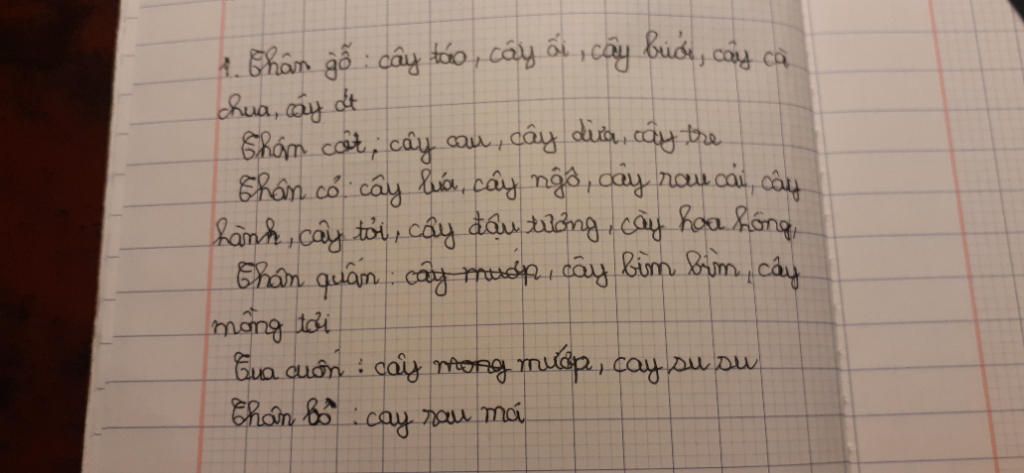 1. Thân gỗ : cây táo, cây ổi, cây bưởi, cây cà
chua, cây ớt
Thân cột ; cây cau, cây dừa, cây tre
Thân cỏ : cây lúa, cây ngô, cây rau cải, cây
hành, cây tỏi, cây đậu tương, cây hoa hồng,
Thân quấn : cây mướp, cây bìm bìm, cây
mồng tơi
Tua cuốn : cây mong mướp, cay su su
Thân bò : cay rau má